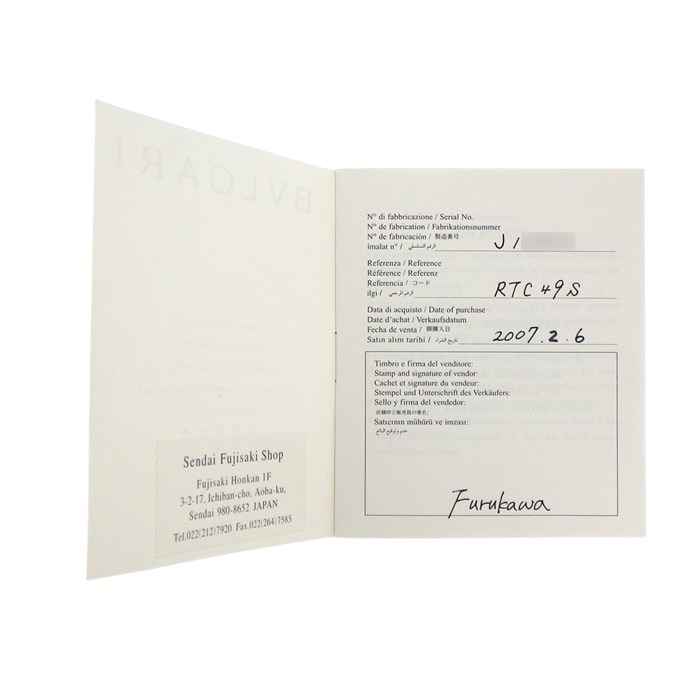 BVLGARI
Sendai Fujisaki Shop
Fujisaki Honkan 1F
3-2-17, Ichiban-cho, Aoba-ku,
Sendai 980-8652 JAPAN
Tel.022(212)7920 Fax.022(264)7585
N° di fabbricazione / Serial No.
N° de fabrication / Fabrikationsnummer
N° de fabricación / 製造番号
imalat n° / الرقم التسلسلي J1
Referenza / Reference
Référence / Referenz
Referencia / コード
ılgi / الرقم المرجعي RTC49S
Data di acquisto / Date of purchase
Date d'achat / Verkaufsdatum
Fecha de venta / 御購入日
Satın alım tarihi / تاريخ الشراء 2007.2.6
Timbro e firma del venditore:
Stamp and signature of vendor:
Cachet et signature du vendeur:
Stempel und Unterschrift des Verkäufers:
Sello y firma del vendedor:
店舗印と販売員の署名:
Satıcının mühürü ve imzası:
ختم وتوقيع البائع
Furukawa